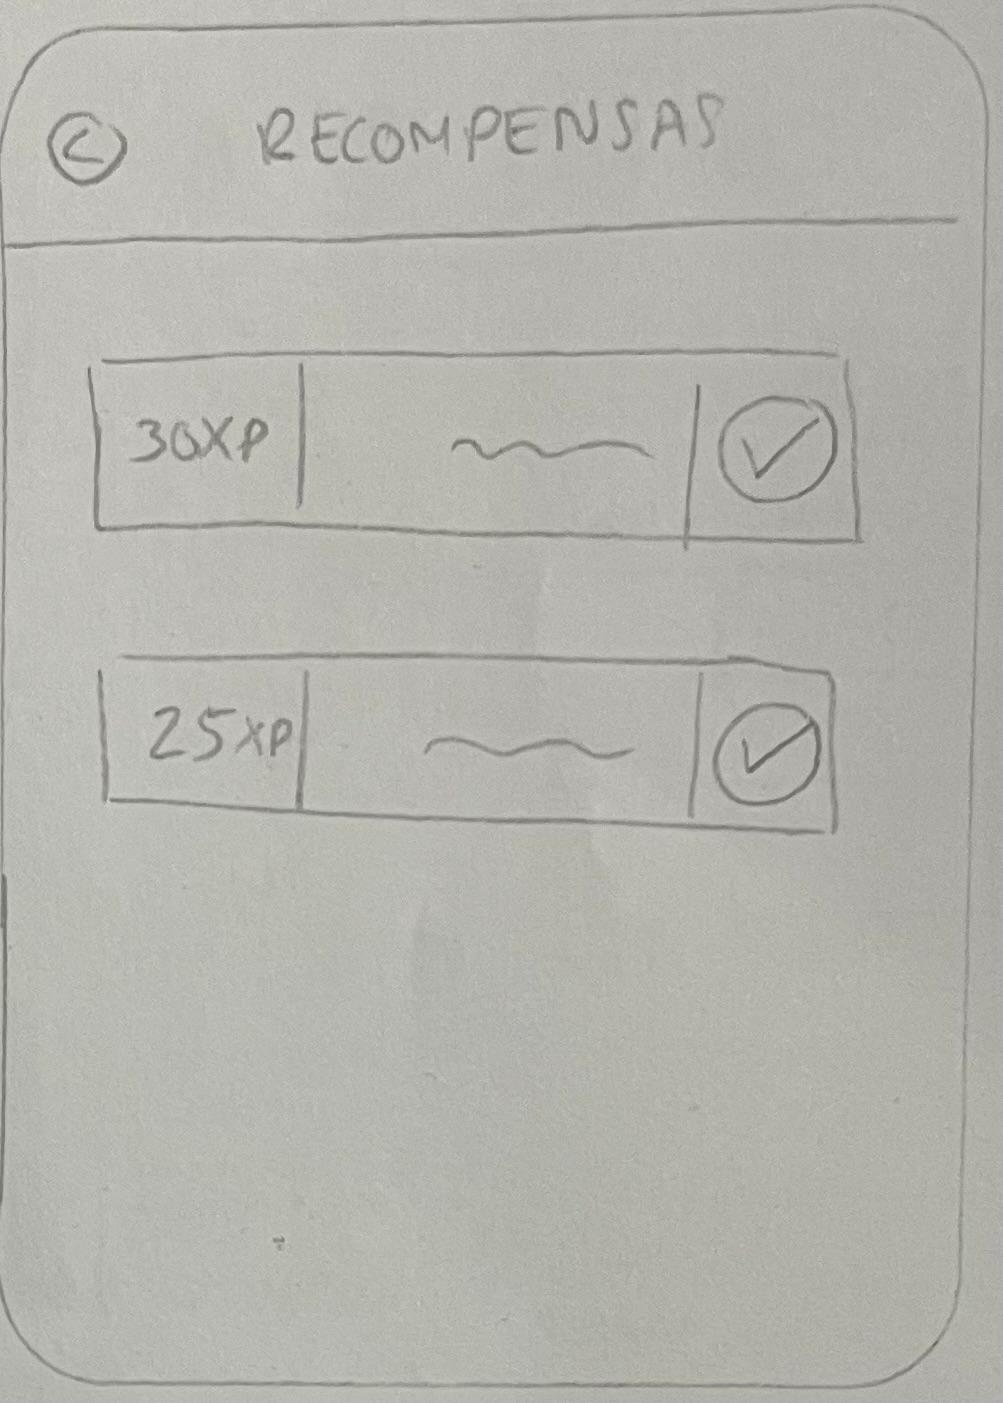 RECOMPENSAS
30XP
25XP